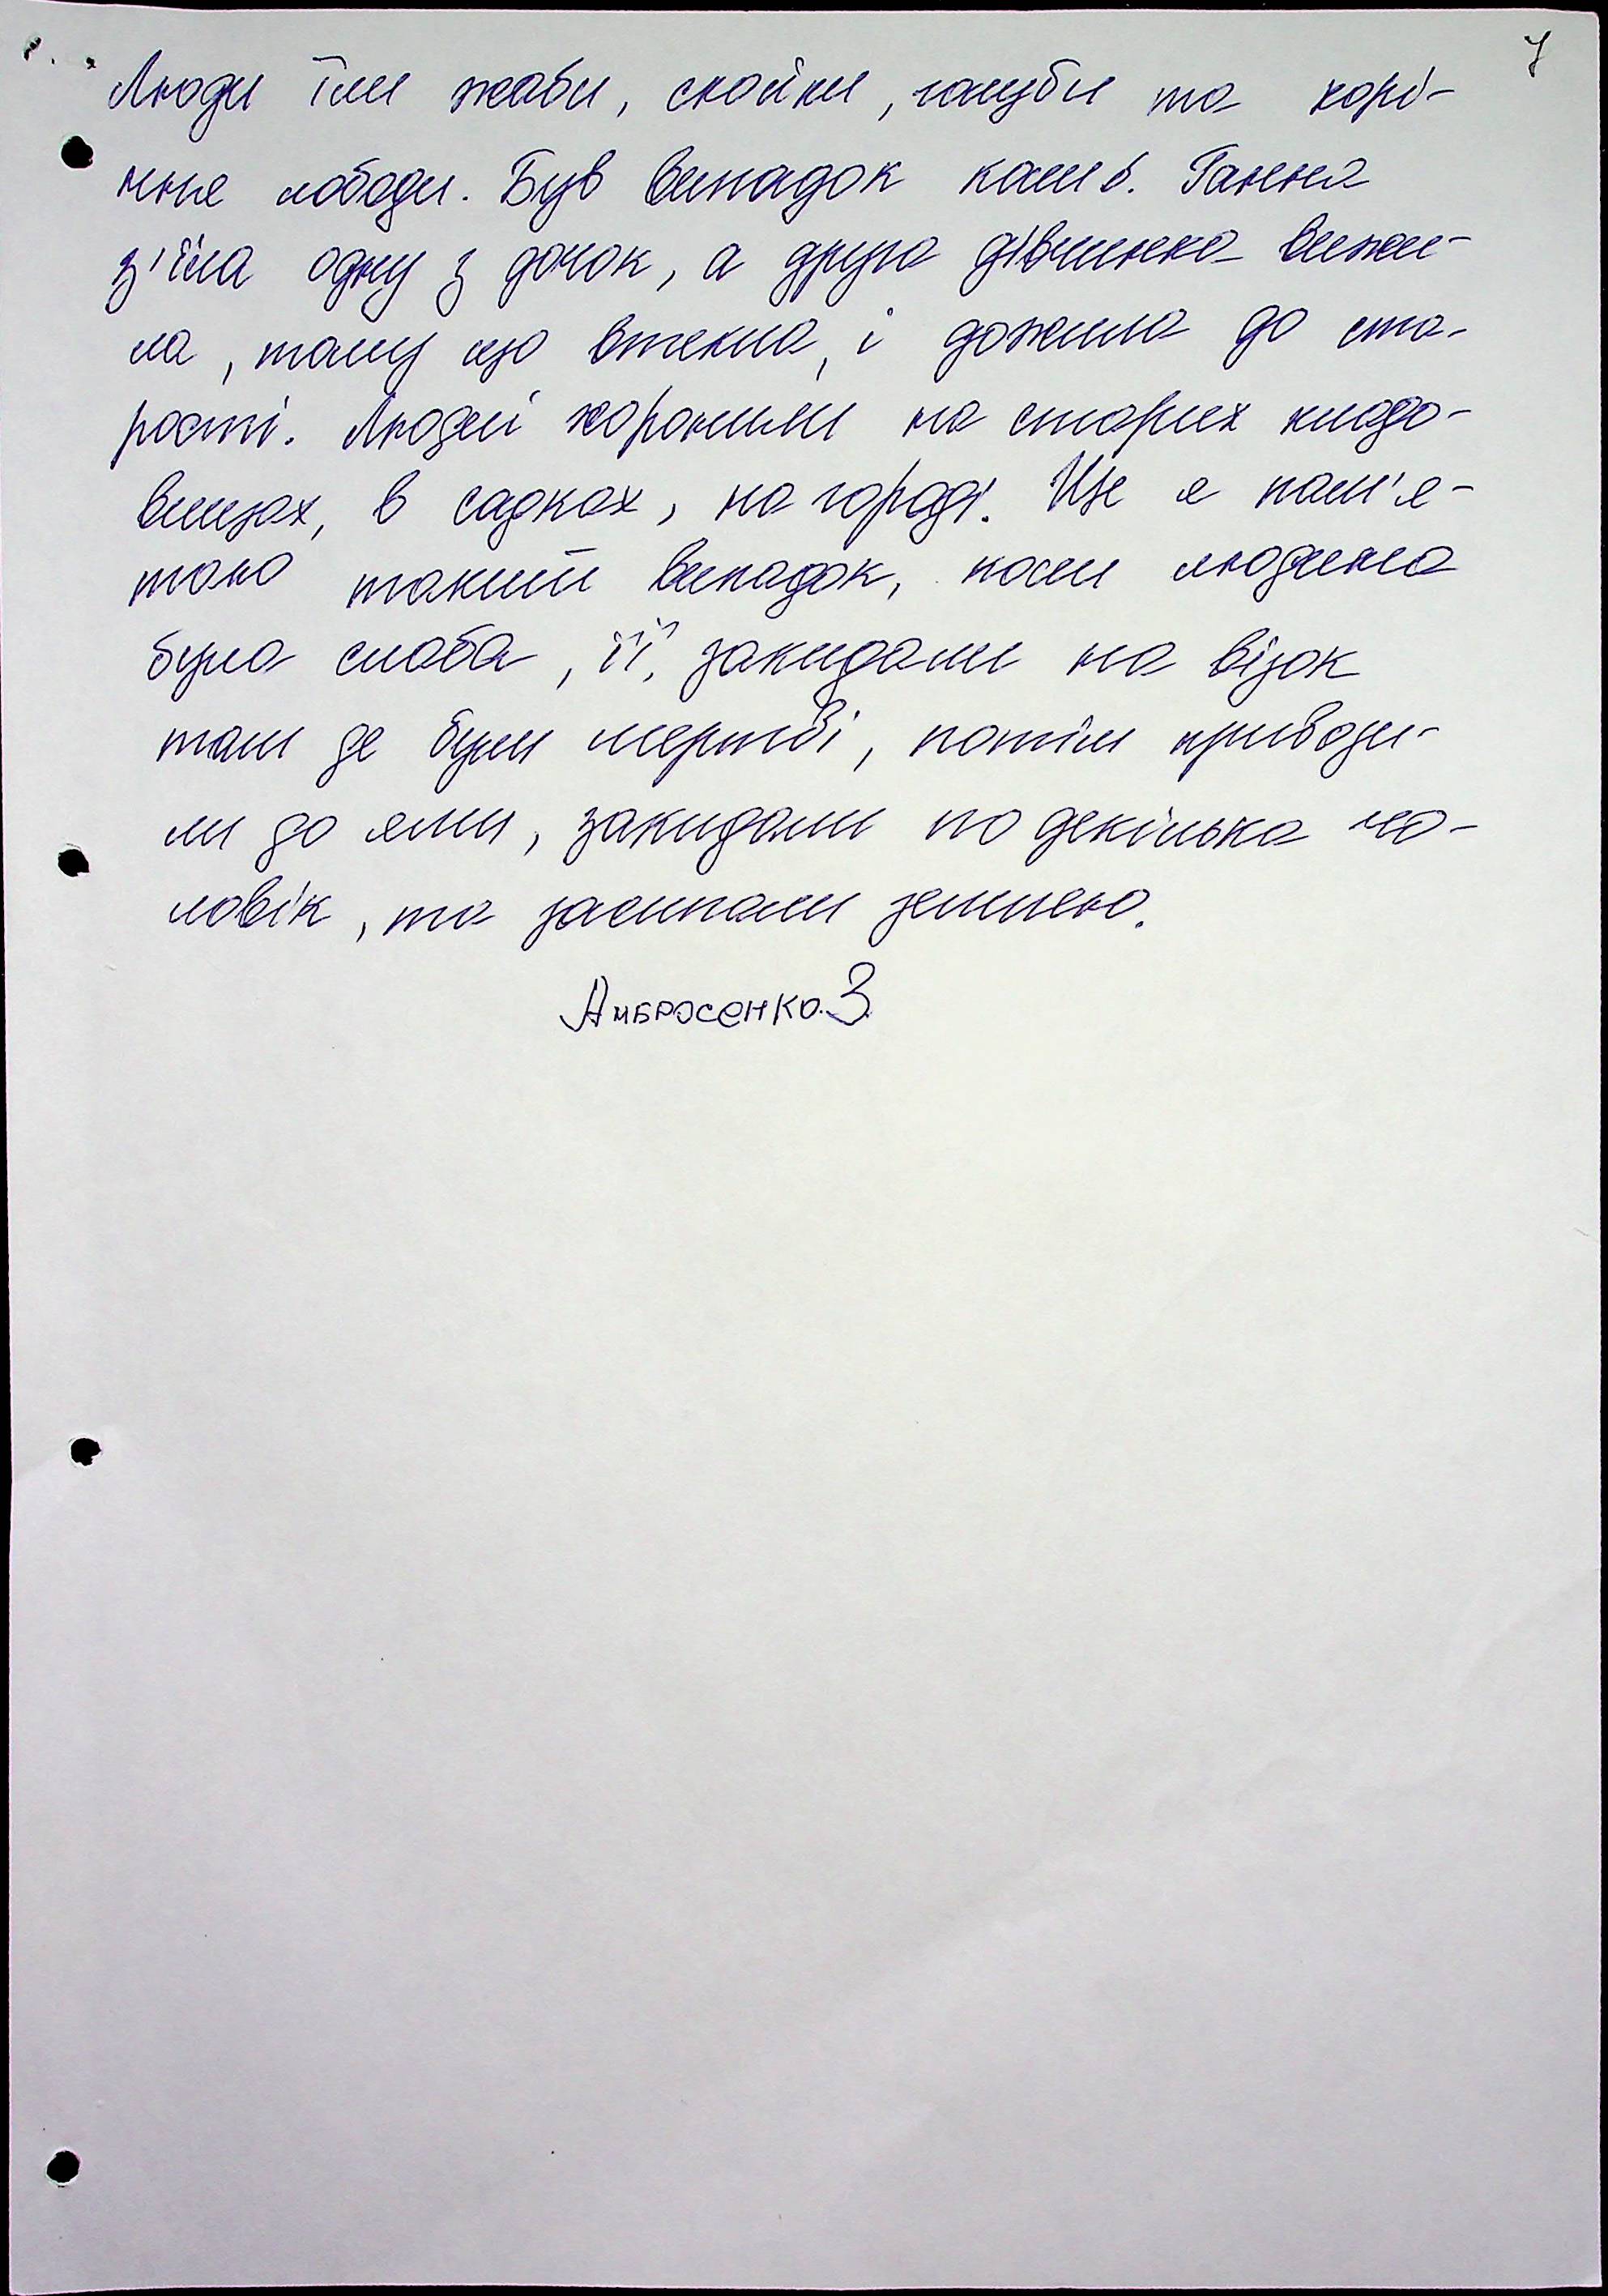 7
Люди їли жаби, скойки, голуби та корі-
ння лободи. Був випадок коли б. Ганна
з'їла одну з дочок, а друга дівчинка вижи-
ла, тому що втекла, і дожила до ста-
рості. Людей хоронили на старих кладо-
вищах, в садках, на городі. Ще я пам'я-
таю такий випадок, коли людина
була слаба, її, закидали на візок
там де були мертві, потім приводи-
ли до ями, закидали по декілька чо-
ловік, та засипали землею.
Амбросенко.З.